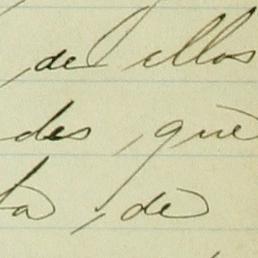 , de ellos
des, que
ta, de